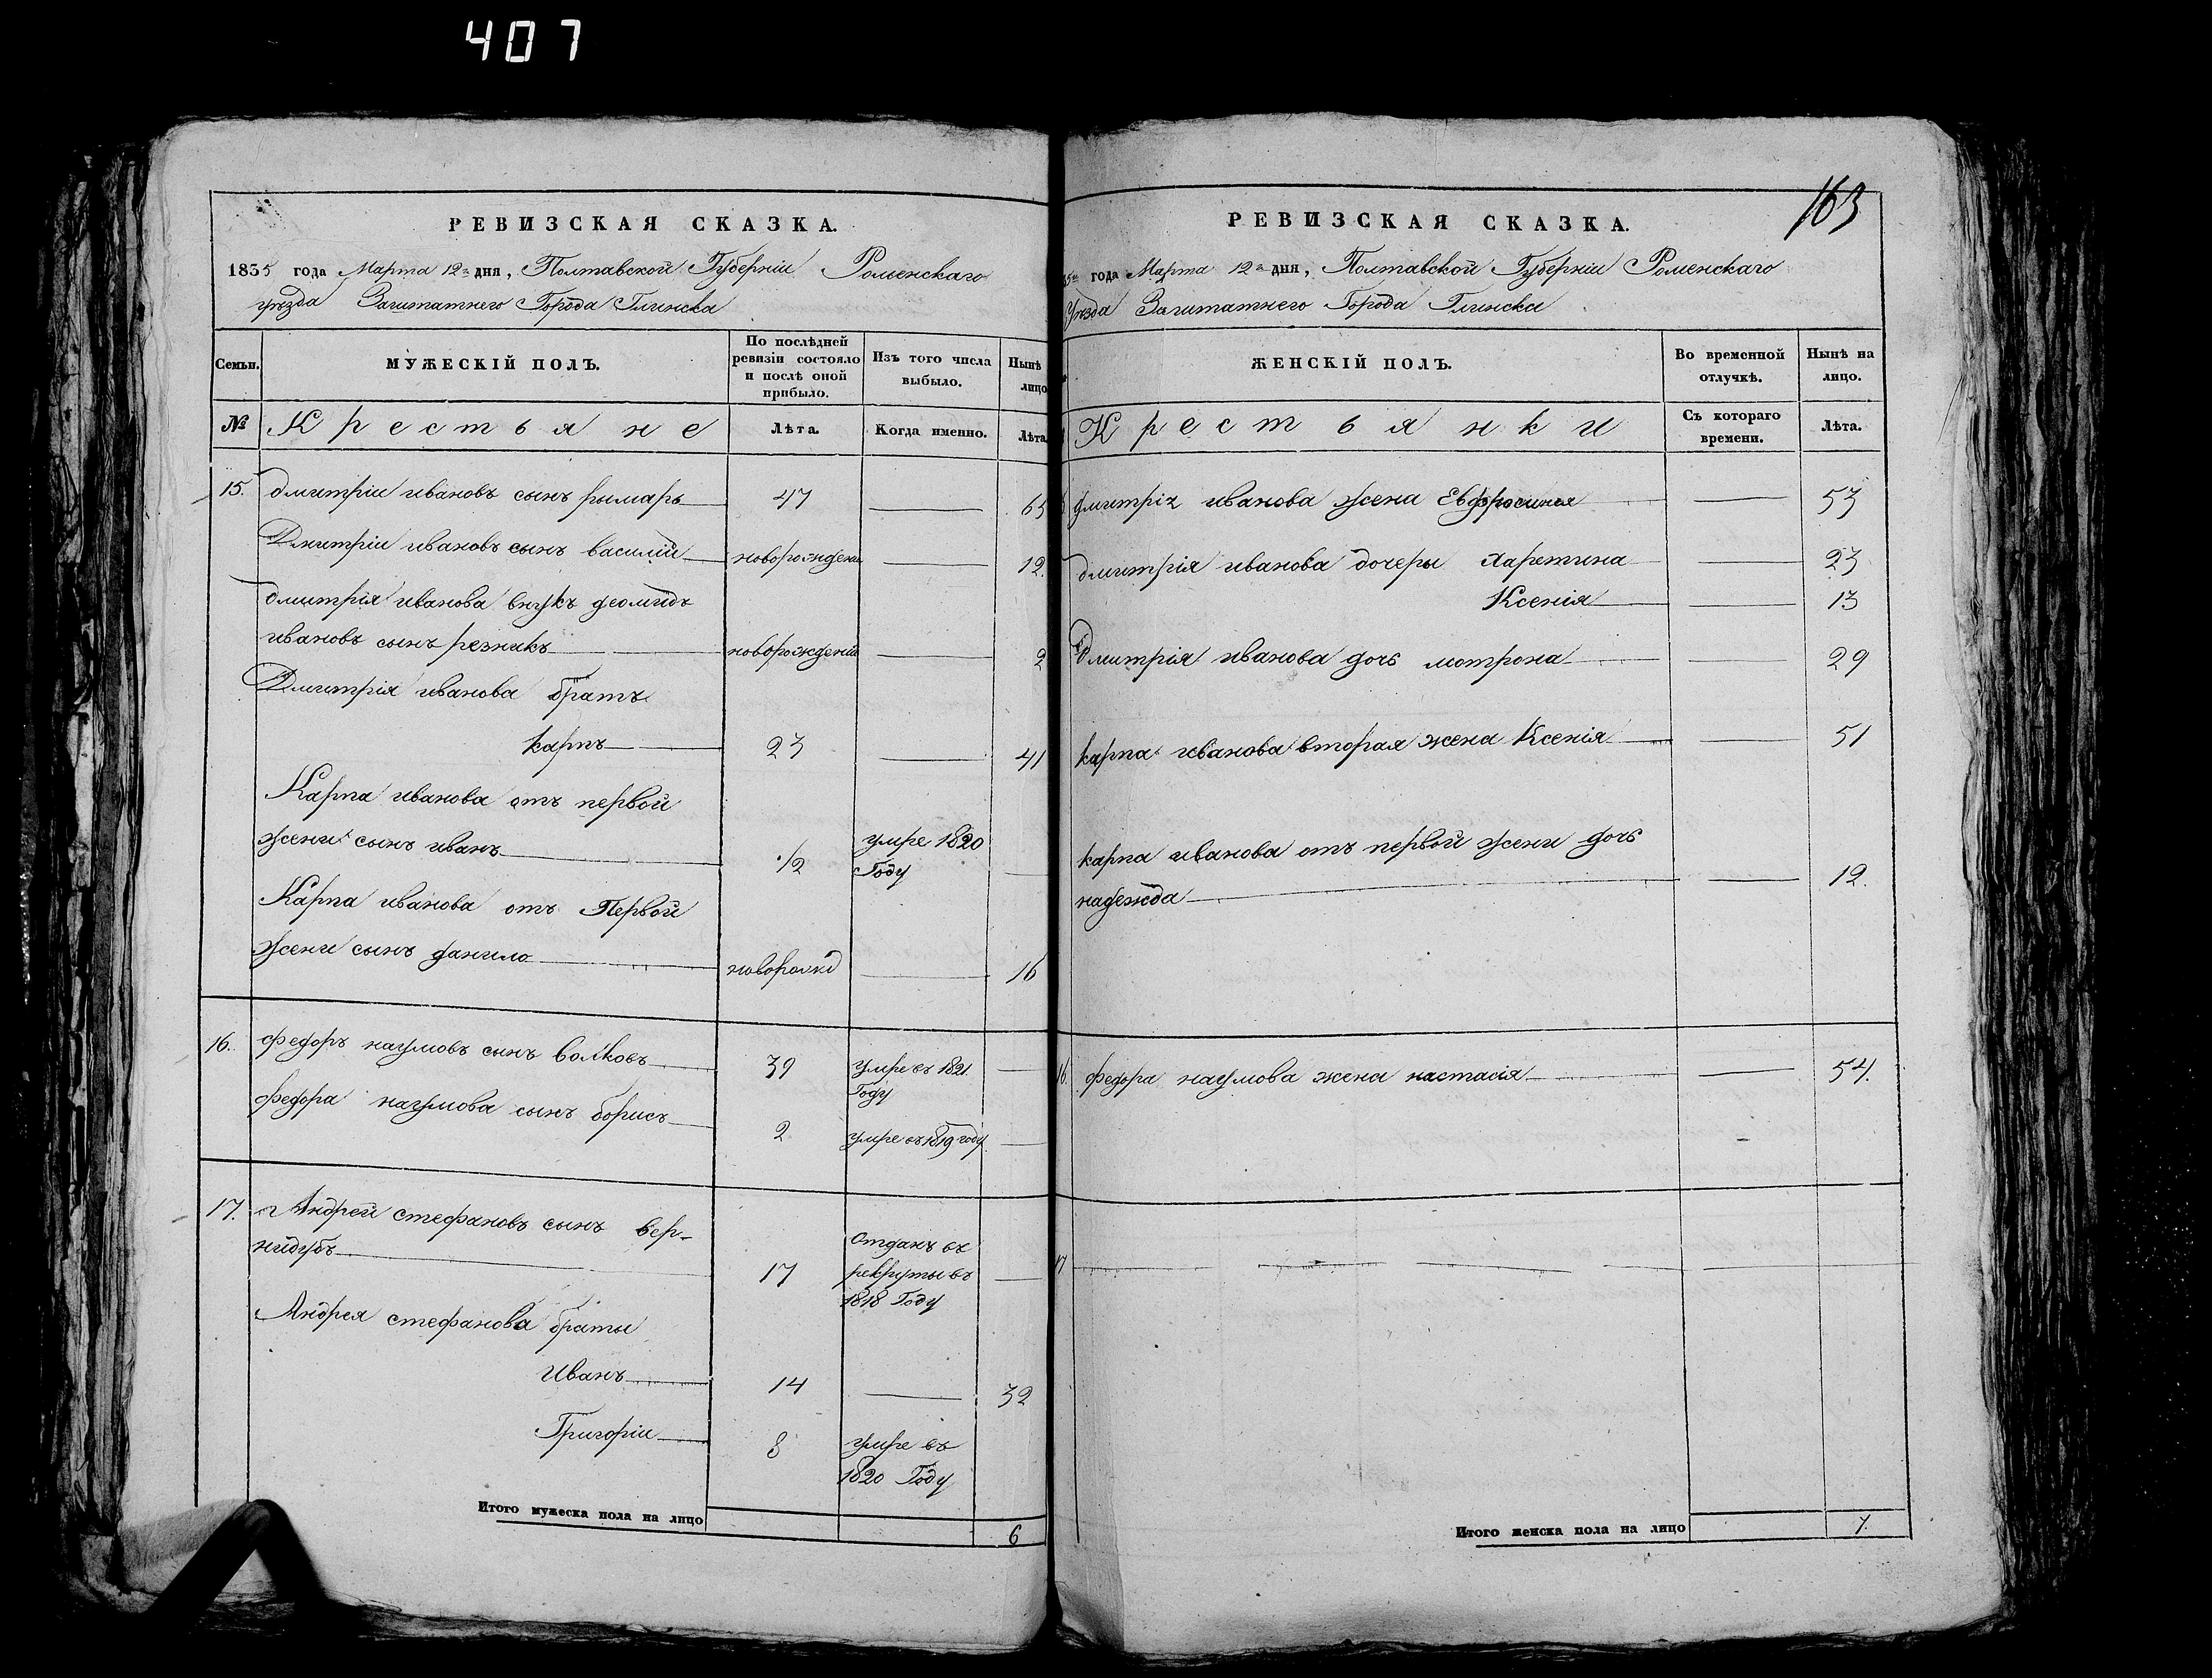 407
РЕВИЗСКАЯ СКАЗКА.
1835 года Марта 12го дня, Полтавской Губерніи Роменскаго
уѣзда Заштатнего Города Глинска
Семьи.
МУЖЕСКІЙ ПОЛЪ.
По послѣдней
ревизіи состояло
и послѣ оной
прибыло.
Изъ того числа
выбыло.
Нынѣ
лицо
№
Крестьяне
Лѣта.
Когда именно.
Лѣта
15. дмитріи ивановъ сынъ рымарь 47 65
Дмитріи ивановъ сынъ василій новорожденъ 12.
дмитрія иванова внукъ деомидъ
ивановъ сынъ резникъ новорожденъ 2
Дмитрія иванова братъ
карпъ 23 41
Карпа иванова отъ первой
жени сынъ иванъ 1/2 умре 1820
Году
Карпа иванова отъ Первой
жени сынъ данило новорожд 16
16. федоръ наумовъ сынъ волковъ 39 умре въ 1821.
Году
федора наумова сынъ борисъ 2 умре въ 1819 году
17. Андрей стефановъ сынъ вер-
нидубъ 17 Отданъ въ
рекруты въ
1818 Году
Андрея стефанова браты
Иванъ 14 32
Григоріи 8 умре въ
1820 Году
Итого мужеска пола на лицо 6
163
РЕВИЗСКАЯ СКАЗКА.
года Марта 12го дня, Полтавской Губерніи Роменскаго
Уѣзда Заштатнего Города Глинска
ЖЕНСКІЙ ПОЛЪ.
Во временной
отлучкѣ.
Нынѣ на
лицо.
Крестьянки
Съ котораго
времени.
Лѣта.
дмитрія иванова жена Евфросинія 53
дмитрія иванова дочеры Харетина 23
Ксенія 13
Дмитрія иванова дочь мотрона 29
карпа иванова вторая жена Ксенія 51
карпа иванова отъ первой жени дочь
надежда 12.
16. федора наумова жена настасія 54.
17
Итого женска пола на лицо 7.